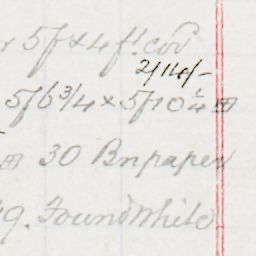 5f x 4 ft. cov
2/14/-
5f6 3/4 x 5f10 1/4 ⊞
⊞ 30 Bnpaper
9. Found White